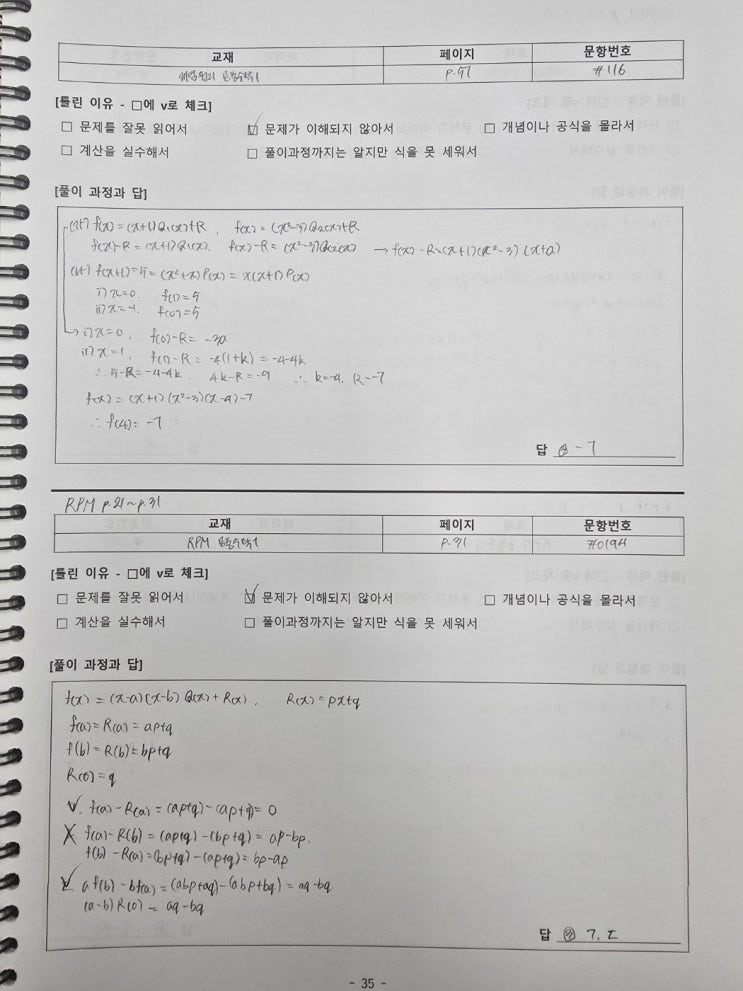 교재 페이지 문항번호
P.97 #116
[틀린 이유 - □에 v로 체크]
□ 문제를 잘못 읽어서 ☑ 문제가 이해되지 않아서 □ 개념이나 공식을 몰라서
□ 계산을 실수해서 □ 풀이과정까지는 알지만 식을 못 세워서
[풀이 과정과 답]
(가) f(x) = (x+1)Q₁(x)+R, f(x) = (x²-3)Q₂(x)+R
f(x)-R = (x+1)Q₁(x), f(x)-R = (x²-3)Q₂(x) → f(x)-R=(x+1)(x²-3)(x+a)
(나) f(x+1)-5 = (x²+x)P(x) = x(x+1)P(x)
i) x=0, f(1) = 5
ii) x=-1, f(0) = 5
→ i) x=0, f(0)-R = -3a
ii) x=1, f(1)-R = -4(1+k) = -4-4k
∴ 5-R = -4-4k, 4k-R = -9 ∴ k=-4, R=-7
f(x) = (x+1)(x²-3)(x-4)-7
∴ f(4) = -7
답 -7
RPM P.21~P.31
교재 페이지 문항번호
RPM 공통수학1 P.31 #0194
[틀린 이유 - □에 v로 체크]
□ 문제를 잘못 읽어서 ☑ 문제가 이해되지 않아서 □ 개념이나 공식을 몰라서
□ 계산을 실수해서 □ 풀이과정까지는 알지만 식을 못 세워서
[풀이 과정과 답]
f(x) = (x-a)(x-b)Q(x)+R(x), R(x)=px+q
f(a) = R(a) = ap+q
f(b) = R(b) = bp+q
R(0) = q
f(a)-R(a) = (ap+q)-(ap+q) = 0
f(a)-R(b) = (ap+q)-(bp+q) = ap-bp.
f(b)-R(a) = (bp+q)-(ap+q) = bp-ap
af(b)-bf(a) = (abp+aq)-(abp+bq) = aq-bq
(a-b)R(0) = aq-bq
답 ③ ㄱ, ㄷ
- 35 -